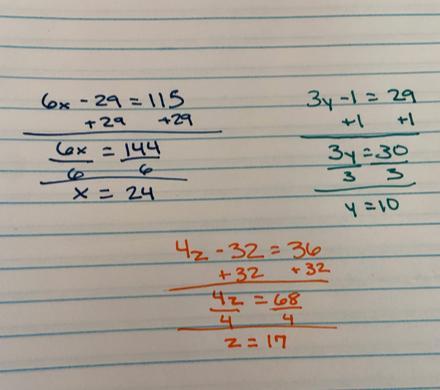 6x - 29 = 115
+29 +29
6x = 144
6 6
x = 24
3y - 1 = 29
+1 +1
3y = 30
3 3
y = 10
4z - 32 = 36
+32 +32
4z = 68
4 4
z = 17